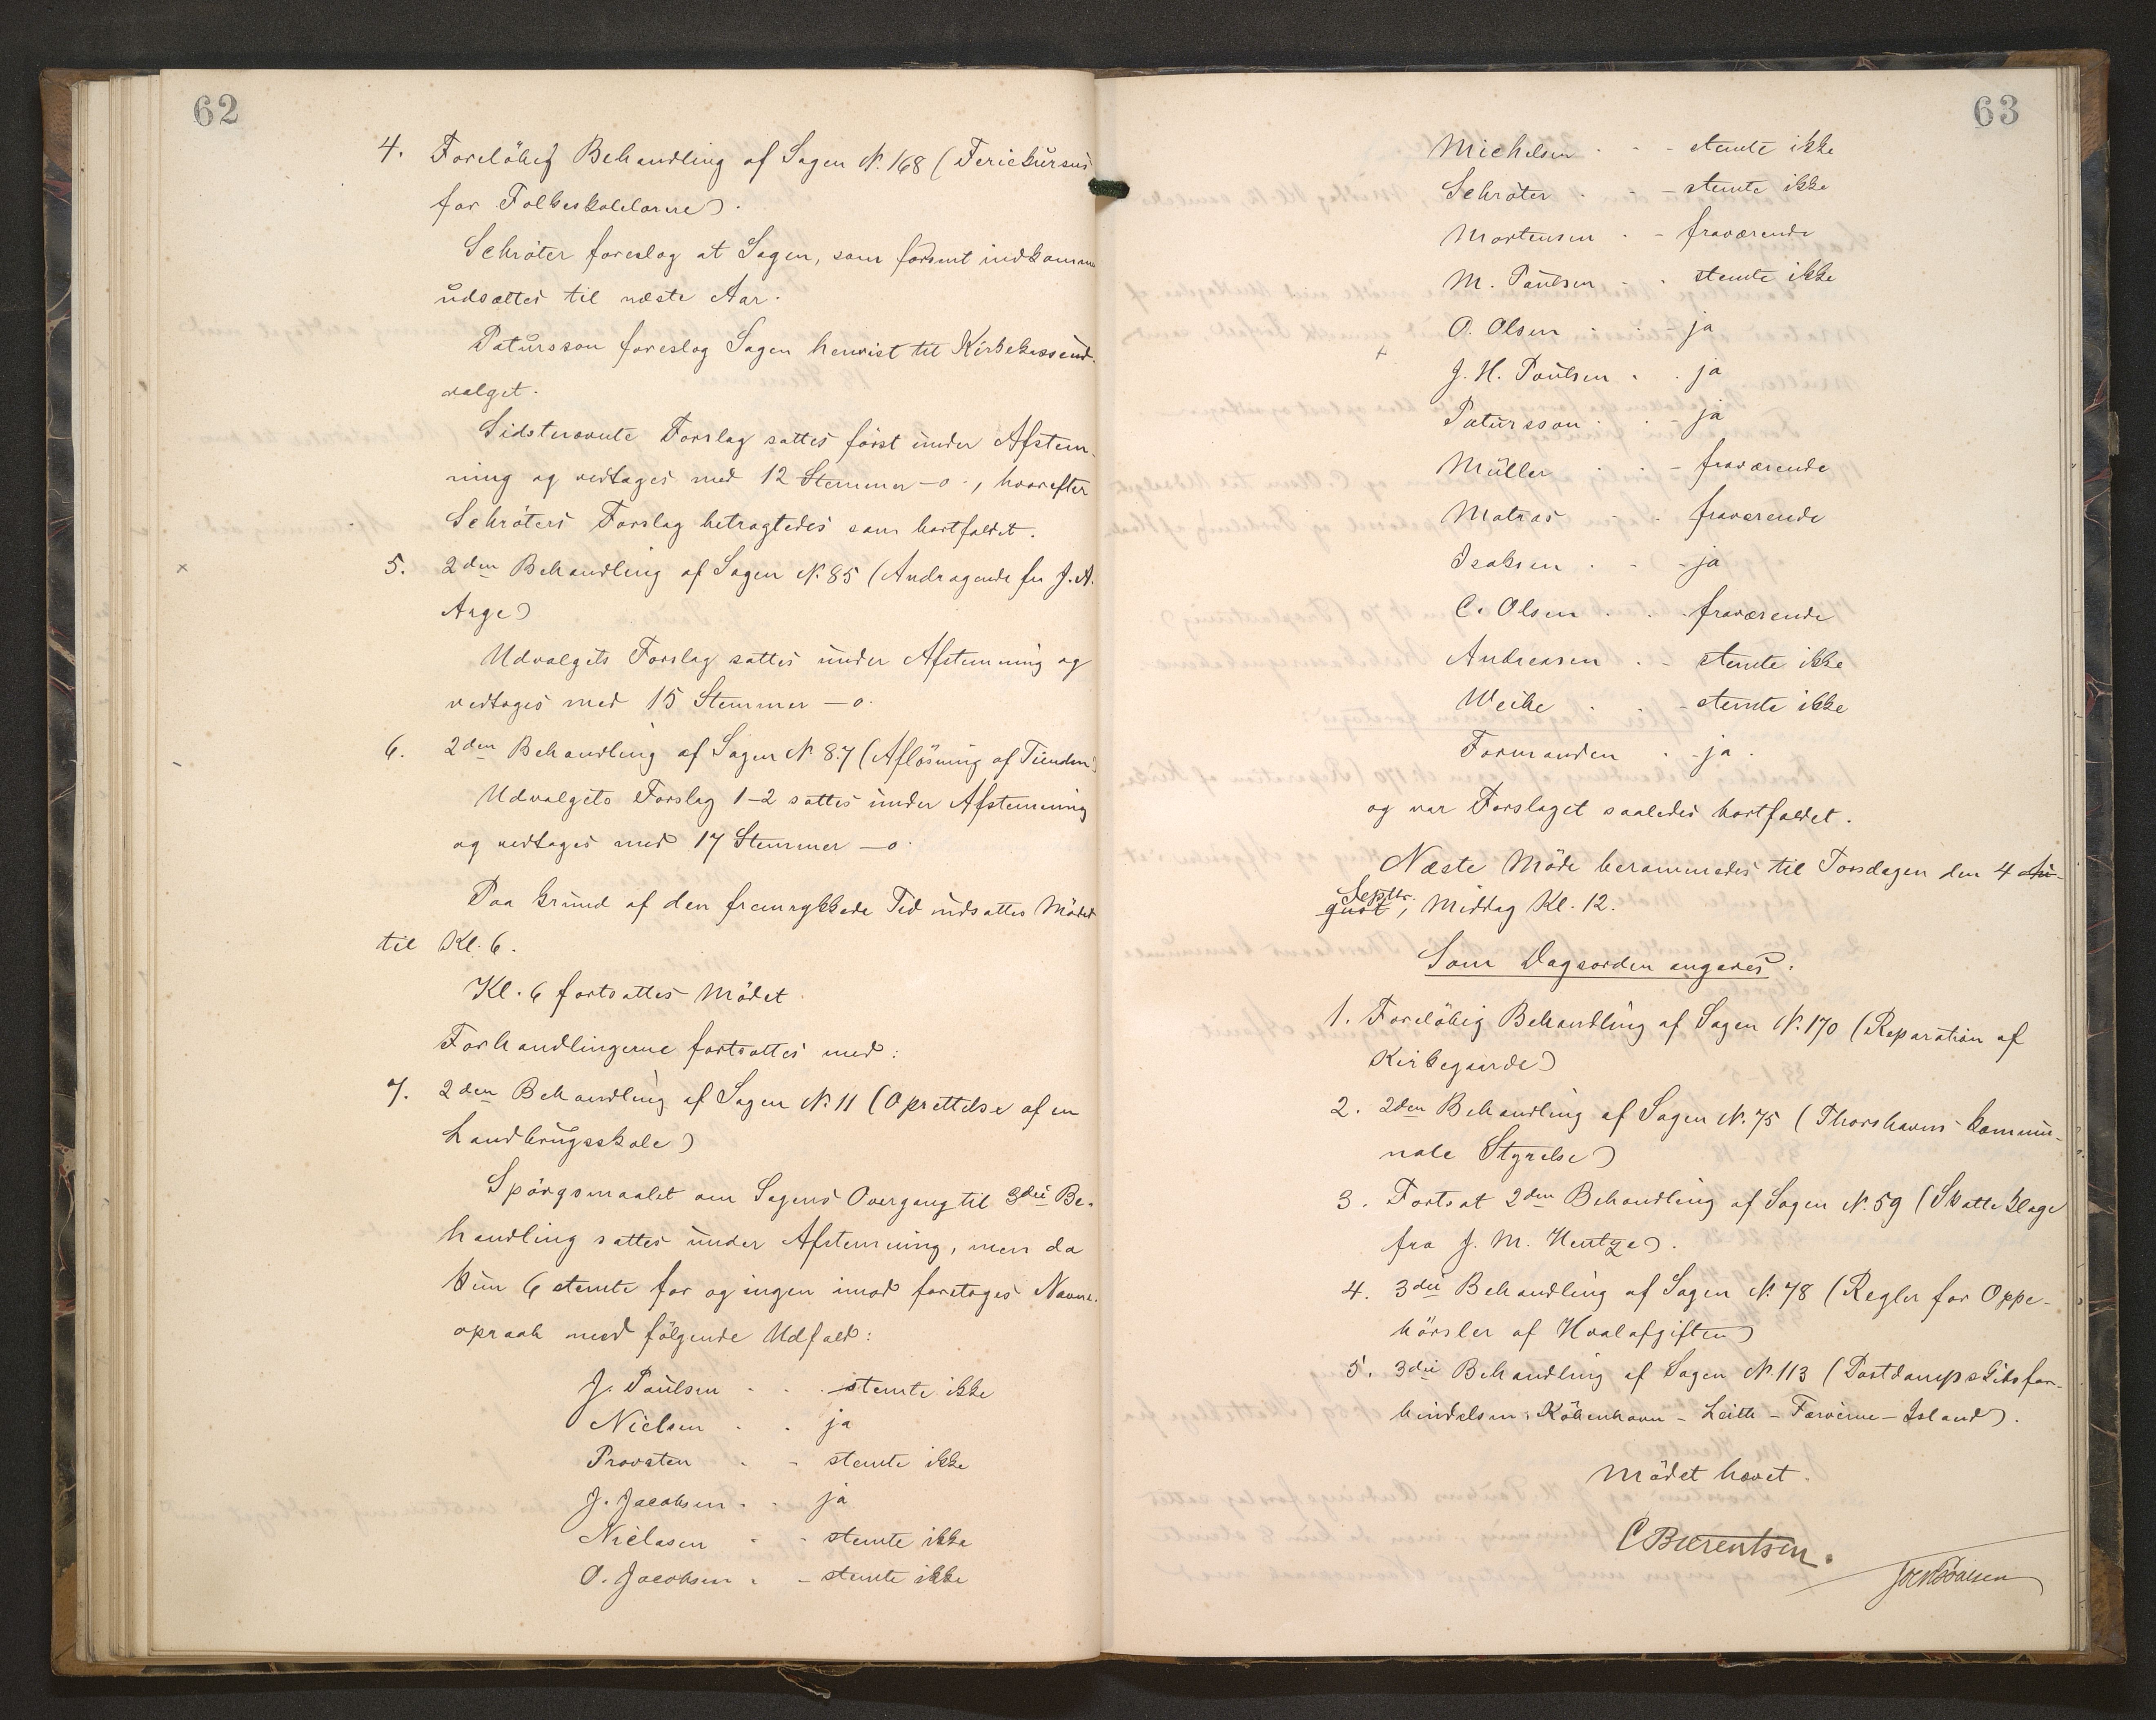 62
4. Foreløbig Behandling af Sagen N. 168 (Feriekursus
for Folkeskolelærere).
Schrøter foreslog at Sagen, som forsent indkommen
udsættes til næste Aar.
Patursson foreslog Sagen henvist til Kirkekasseud-
valget.
Sidstnævnte Forslag sattes først under Afstem-
ning og vedtoges med 12 Stemmer – 0, hvorefter
Schrøters Forslag betragtedes som bortfaldet.
5. 2den Behandling af Sagen N. 85 (Andragende fra J. A.
Arge)
Udvalgets Forslag sattes under Afstemning og
vedtoges med 15 Stemmer – 0.
6. 2den Behandling af Sagen N. 87 (Afløsning af Tienden)
Udvalgets Forslag 1–2 sattes under Afstemning
og vedtoges med 17 Stemmer – 0.
Paa Grund af den fremrykkede Tid udsattes Mødet
til Kl. 6.
Kl. 6 fortsattes Mødet.
Forhandlingerne fortsattes med:
7. 2den Behandling af Sagen N. 11 (Oprettelse af en
Landbrugsskole)
Spørgsmaalet om Sagens Overgang til 3die Be-
handling sattes under Afstemning, men da
kun 6 stemte for og ingen imod foretoges Navne-
opraab med følgende Udfald:
J. Poulsen . . stemte ikke
Nielsen . . ja
Provsten . - stemte ikke
J. Jacobsen . . ja
Niclasen . . stemte ikke
O. Jacobsen . - stemte ikke
63
Michelsen . - - stemte ikke
Schrøter . - - stemte ikke
Mortensen . - fraværende
M. Poulsen - . stemte ikke
O. Olsen . . - ja
J. H. Poulsen . . ja
Patursson . . - ja
Müller . . - fraværende
Matras - . fraværende
Isaksen . - - ja
C. Olsen . . . fraværende
Andreasen . - stemte ikke
Weihe . . - stemte ikke
Formanden . - ja.
og var Forslaget saaledes bortfaldet.
Næste Møde berammedes til Torsdagen den 4 Au-
Septbr.
gust, Middag Kl. 12.
Som Dagsorden angaves:
1. Foreløbig Behandling af Sagen N. 170 (Reparation af
Kirkegaarde)
2. 2den Behandling af Sagen N. 75 (Thorshavns kommu-
nale Styrelse)
3. Fortsat 2den Behandling af Sagen N. 59 (Skatteklage
fra J. M. Hentze).
4. 3die Behandling af Sagen N. 78 (Regler for Oppe-
børsler af Hvalafgiften)
5. 3die Behandling af Sagen N. 113 (Postdampskibsfor-
bindelsen: København – Leith – Færøerne – Island).
Mødet hævet.
C Bærentsen.